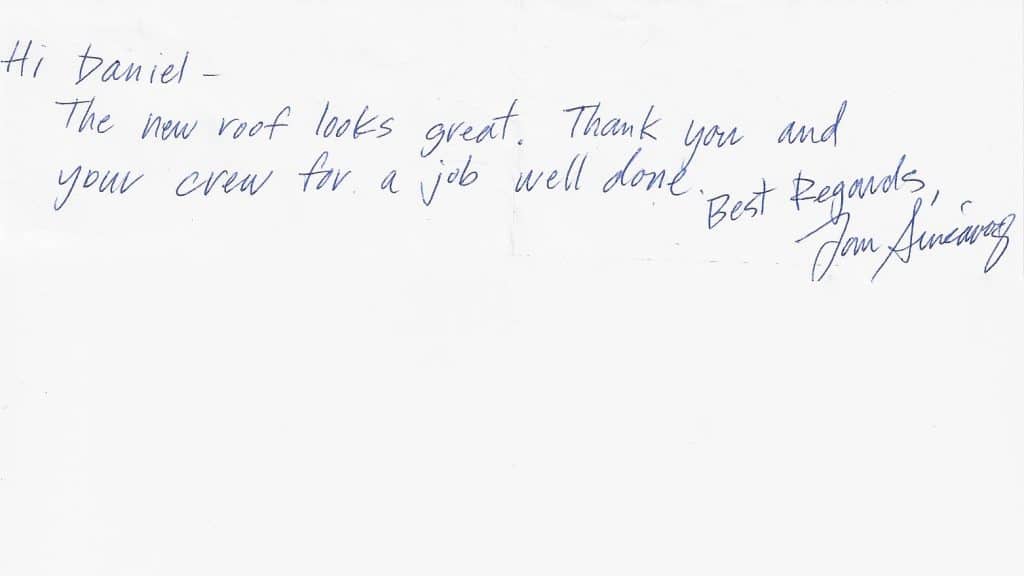 Hi Daniel –
The new roof looks great. Thank you and
your crew for a job well done.
Best Regards,
Tom